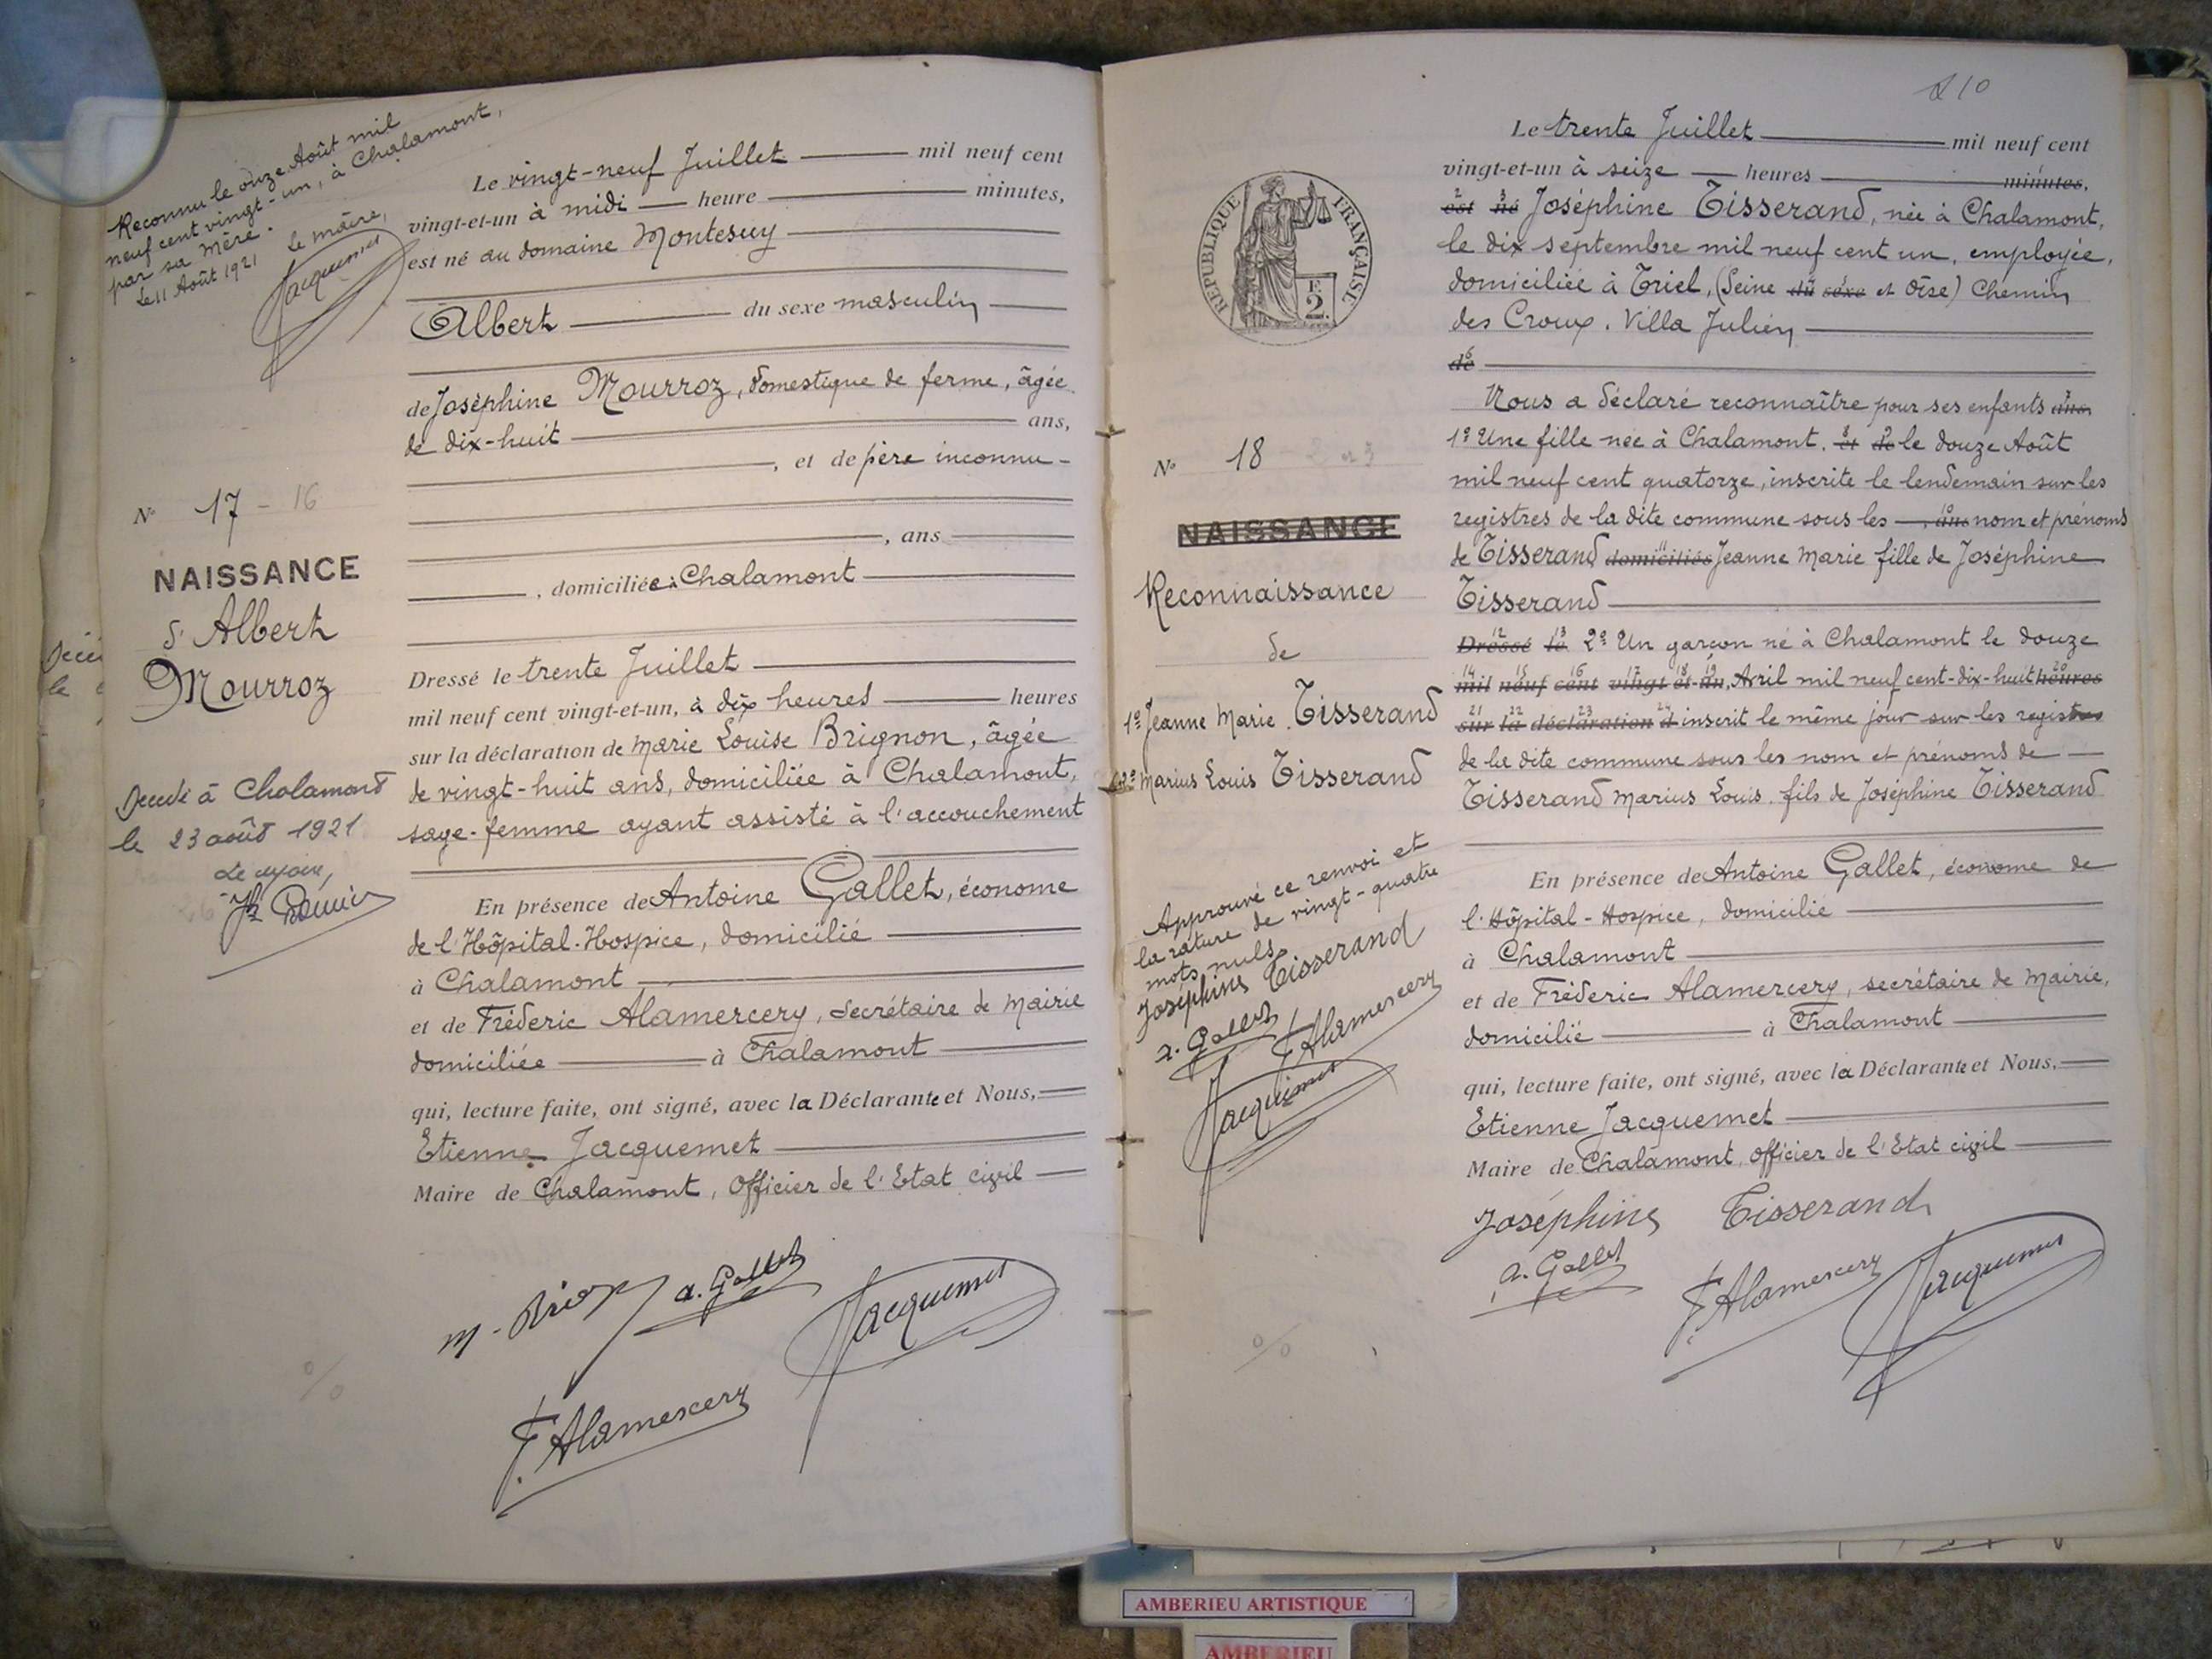 Reconnu le onze Août mil
neuf cent vingt-un, à Chalamont,
par sa mère.
Le 11 Août 1921
Le maire,
Jacquemet
N° 17 - 16
NAISSANCE
d'Albert
Mourroz
Décédé à Chalamont
le 23 août 1921
Le maire,
Le vingt-neuf Juillet mil neuf cent
vingt-et-un à midi heure minutes,
est né au domaine Montesuy
Albert du sexe masculin
de Joséphine Mourroz, domestique de ferme, âgée
de dix-huit ans,
, et de père inconnu -
, ans
, domiciliée à Chalamont
Dressé le trente Juillet
mil neuf cent vingt-et-un, à dix heures heures
sur la déclaration de Marie Louise Brignon, âgée
de vingt-huit ans, domiciliée à Chalamont,
sage-femme ayant assisté à l'accouchement
En présence de Antoine Gallet, économe
de l'Hôpital-Hospice, domicilié
à Chalamont
et de Fréderic Alamercery, secrétaire de Mairie
domiciliée à Chalamont
qui, lecture faite, ont signé, avec la Déclarante et Nous,
Etienne Jacquemet
Maire de Chalamont, Officier de l'Etat civil
a. Gallet
Jacquemet
F. Alamercery
210
RÉPUBLIQUE FRANÇAISE
F.
2.
N° 18
NAISSANCE
Reconnaissance
de
1° Jeanne Marie Tisserand
& 2° Marius Louis Tisserand
Approuvé ce renvoi et
la rature de vingt-quatre
mots nuls
Joséphine Tisserand
a. Gallet
F. Alamercery
Jacquemet
Le trente Juillet mil neuf cent
vingt-et-un à seize heures minutes,
est né Joséphine Tisserand, née à Chalamont,
le dix septembre mil neuf cent un, employée,
domiciliée à Triel, (Seine du sexe et Oise) Chemin
des Croux. Villa Julien
de
Nous a déclaré reconnaître pour ses enfants ans
1° Une fille née à Chalamont. et de le douze Août
mil neuf cent quatorze, inscrite le lendemain sur les
registres de la dite commune sous les , ans nom et prénoms
de Tisserand domiciliés Jeanne Marie fille de Joséphine
Tisserand
Dressé le 2° Un garçon né à Chalamont le douze
mil neuf cent vingt-et-un, Avril mil neuf cent-dix-huit heures
sur la déclaration d inscrit le même jour sur les registres
de la dite commune sous les nom et prénoms de
Tisserand Marius Louis, fils de Joséphine Tisserand
En présence de Antoine Gallet, économe de
l'Hôpital-Hospice, domicilié
à Chalamont
et de Fréderic Alamercery, secrétaire de Mairie,
domicilié à Chalamont
qui, lecture faite, ont signé, avec la Déclarante et Nous,
Etienne Jacquemet
Maire de Chalamont, Officier de l'Etat civil
Joséphine Tisserand
a. Gallet
F. Alamercery
Jacquemet
AMBERIEU ARTISTIQUE
AMBERIEU